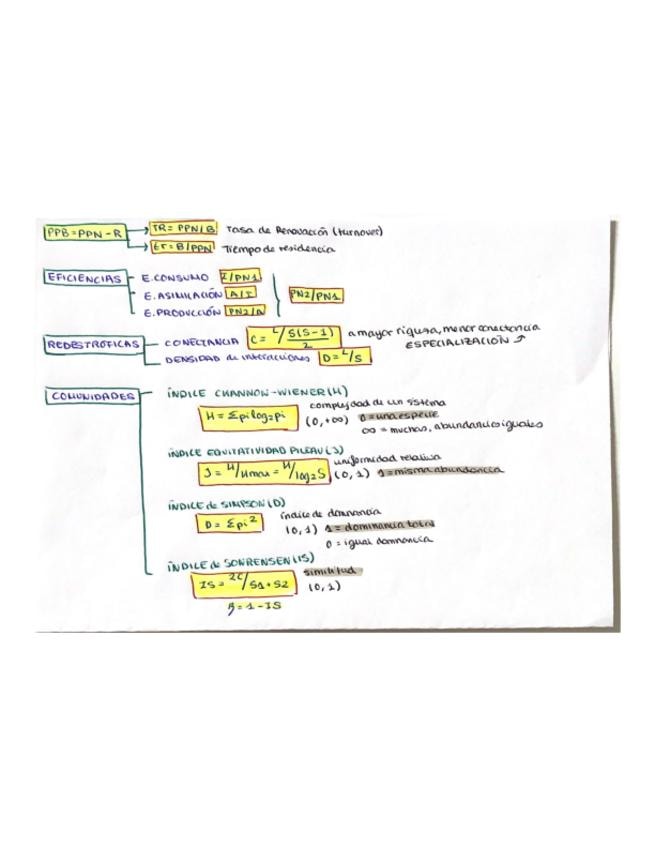 PPB=PPN-R TR= PPN/B Tasa de Renovación (turnover)
Er=B/PPN Tiempo de residencia
EFICIENCIAS E.CONSUMO I/PN1
E. ASIMILACIÓN A/I PN2/PN1
E. PRODUCCIÓN PN2/A
REDES TRÓFICAS CONECTANCIA C = L/S(S-1)/2 a mayor riqueza, menor conectancia
ESPECIALIZACIÓN ↗
DENSIDAD de interacciones D=L/S
COMUNIDADES ÍNDICE CHANNON-WIENER (H)
complejidad de un sistema
H = Σpilog2pi (0,+∞) 0=una especie
∞ = muchas, abundancias iguales
ÍNDICE EQUITATIVIDAD PILEAU (J)
uniformidad relativa
J = H/Hmax = H/log2S (0,1) 1=misma abundancia
ÍNDICE de SIMPSON (D)
índice de dominancia
D = Σpi² (0,1) 1=dominancia total
0 = igual dominancia
ÍNDICE de SONRENSEN (IS)
similitud
IS = 2C/S1+S2 (0,1)
β=1-IS